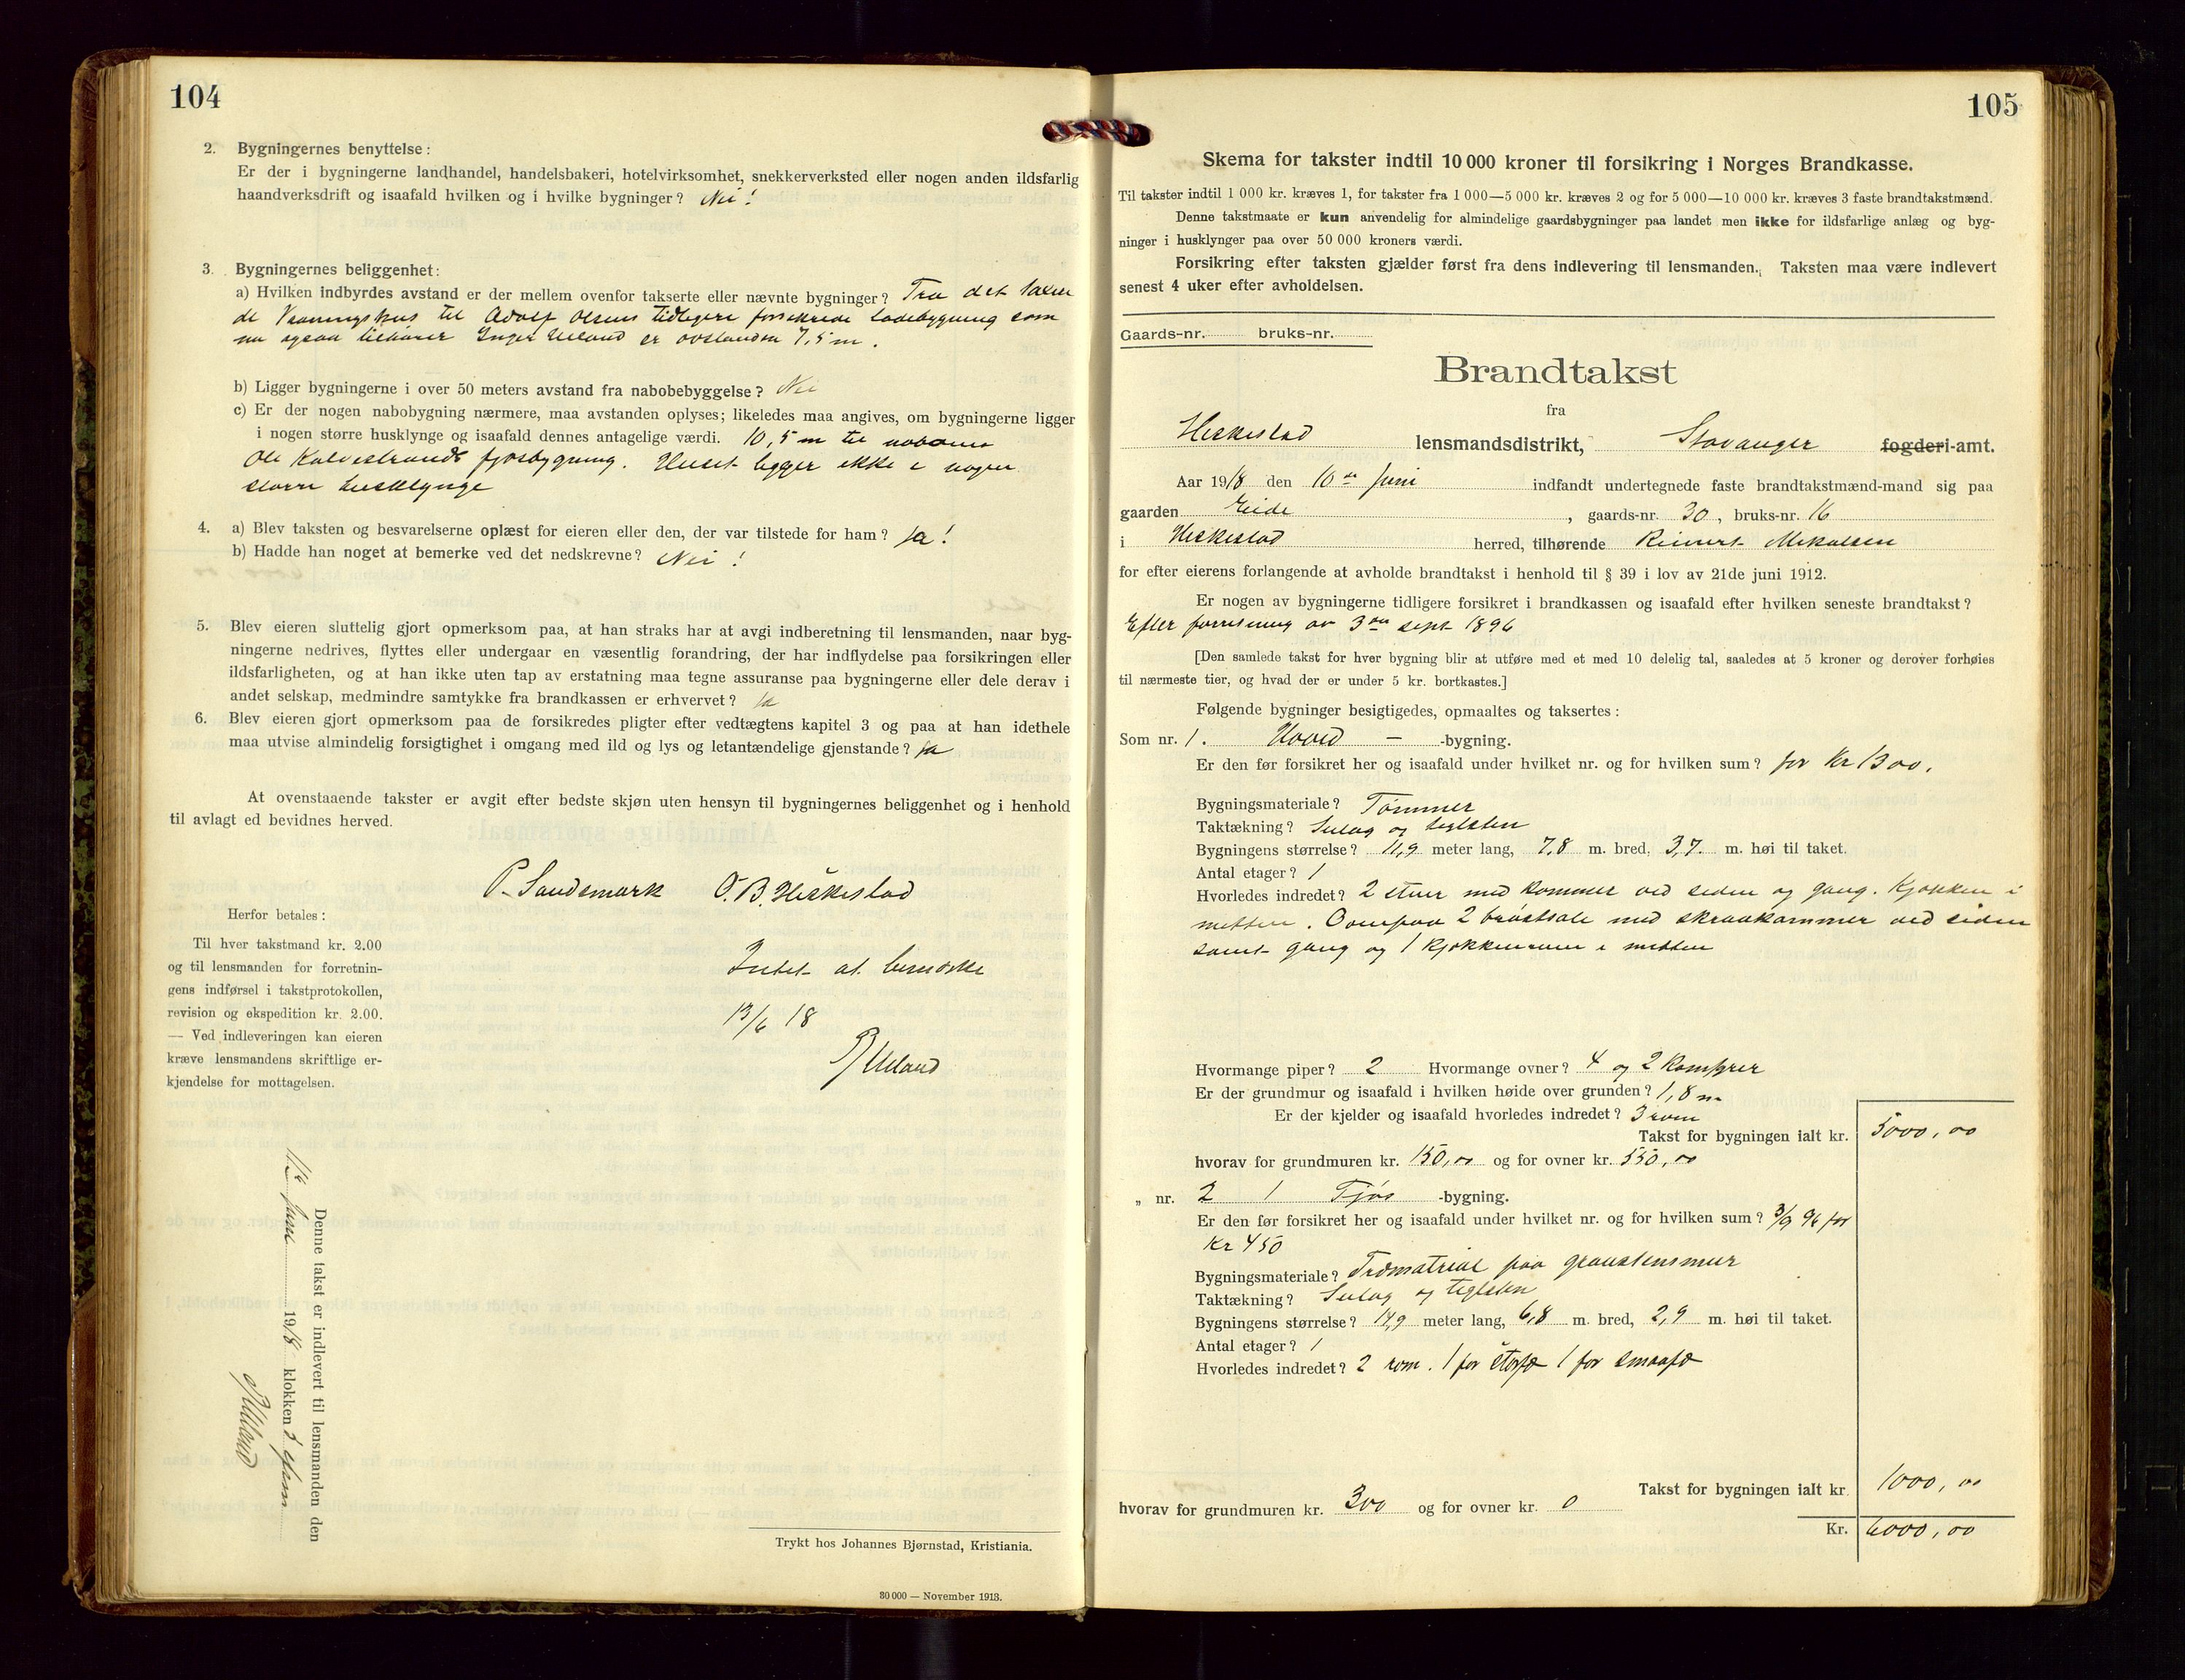 104
2. Bygningernes benyttelse:
Er der i bygningerne landhandel, handelsbakeri, hotelvirksomhet, snekkerverksted eller nogen anden ildsfarlig
haandverksdrift og isaafald hvilken og i hvilke bygninger? Nei!
3. Bygningernes beliggenhet:
a) Hvilken indbyrdes avstand er der mellem ovenfor takserte eller nævnte bygninger? Fra det takser
de Vaaningshus til Adolf Olsens tidligere forsikrede ladebygning som
nu ogsaa tilhører Inger Ueland er avstanden 7,5 m.
b) Ligger bygningerne i over 50 meters avstand fra nabobebyggelse? Nei
c) Er der nogen nabobygning nærmere, maa avstanden oplyses; likeledes maa angives, om bygningerne ligger
i nogen større husklynge og isaafald dennes antagelige værdi. 10,5 m til naboens
Ole Kalvestrands fjøsbygning. Huset ligger ikke i nogen
større husklynge
4. a) Blev taksten og besvarelserne oplæst for eieren eller den, der var tilstede for ham? Ja!
b) Hadde han noget at bemerke ved det nedskrevne? Nei!
5. Blev eieren sluttelig gjort opmerksom paa, at han straks har at avgi indberetning til lensmanden, naar byg-
ningerne nedrives, flyttes eller undergaar en væsentlig forandring, der har indflydelse paa forsikringen eller
ildsfarligheten, og at han ikke uten tap av erstatning maa tegne assuranse paa bygningerne eller dele derav i
andet selskap, medmindre samtykke fra brandkassen er erhvervet? Ja
6. Blev eieren gjort opmerksom paa de forsikredes pligter efter vedtægtens kapitel 3 og paa at han idethele
maa utvise almindelig forsigtighet i omgang med ild og lys og letantændelige gjenstande? Ja
At ovenstaaende takster er avgit efter bedste skjøn uten hensyn til bygningernes beliggenhet og i henhold
til avlagt ed bevidnes herved.
P. Sandsmark O. B. Heskestad
Herfor betales:
Til hver takstmand kr. 2.00
og til lensmanden for forretnin-
gens indførsel i takstprotokollen,
revision og ekspedition kr. 2.00.
— Ved indleveringen kan eieren
kræve lensmandens skriftlige er-
kjendelse for mottagelsen.
Intet at bemærke
13/6 18
P/Ueland
Denne takst er indlevert til lensmanden den
11te Juni 1918 klokken
P Ueland
Trykt hos Johannes Bjørnstad, Kristiania.
30 000 — November 1913.
105
Skema for takster indtil 10 000 kroner til forsikring i Norges Brandkasse.
Til takster indtil 1 000 kr. kræves 1, for takster fra 1 000—5 000 kr. kræves 2 og for 5 000—10 000 kr. kræves 3 faste brandtakstmænd.
Denne takstmaate er kun anvendelig for almindelige gaardsbygninger paa landet men ikke for ildsfarlige anlæg og byg-
ninger i husklynger paa over 50 000 kroners værdi.
Forsikring efter taksten gjælder først fra dens indlevering til lensmanden. Taksten maa være indlevert
senest 4 uker efter avholdelsen.
Gaards-nr. bruks-nr.
Brandtakst
fra
Heskestad lensmandsdistrikt, Stavanger fogderi-amt.
Aar 1918 den 10de Juni indfandt undertegnede faste brandtakstmænd-mand sig paa
gaarden Eide, gaards-nr. 30, bruks-nr. 16
i Heskestad herred, tilhørende Reinert Mikalsen
for efter eierens forlangende at avholde brandtakst i henhold til § 39 i lov av 21de juni 1912.
Er nogen av bygningerne tidligere forsikret i brandkassen og isaafald efter hvilken seneste brandtakst?
Efter forretning av 3die sept 1896
[Den samlede takst for hver bygning blir at utføre med et med 10 delelig tal, saaledes at 5 kroner og derover forhøies
til nærmeste tier, og hvad der er under 5 kr. bortkastes.]
Følgende bygninger besigtigedes, opmaaltes og taksertes:
Som nr. 1. Hoved — -bygning.
Er den før forsikret her og isaafald under hvilket nr. og for hvilken sum? for Kr 1300.
Bygningsmateriale? Tømmer
Taktækning? Sulag og teglsten
Bygningens størrelse? 11,9 meter lang, 7,8 m. bred, 3,7 m. høi til taket.
Antal etager? 1
Hvorledes indredet? 2 stuer med kammer ved siden og gang. Kjøkken i
mitten. Ovenpaa 2 brøstsale med skraakammer ved siden
samt gang og 1 kjøkkenrum i mitten
Hvormange piper? 2 Hvormange ovner? 4 og 2 komfyrer
Er der grundmur og isaafald i hvilken høide over grunden? 1,8 m
Er der kjelder og isaafald hvorledes indredet? 3 rom
Takst for bygningen ialt kr. 5000,00
hvorav for grundmuren kr. 150,00 og for ovner kr. 550,00
„ nr. 2 1 Fjøs -bygning.
Er den før forsikret her og isaafald under hvilket nr. og for hvilken sum? 3/9 96 for
Kr 450
Bygningsmateriale? Træmatrial paa graastensmur
Taktækning? Sulag og teglsten
Bygningens størrelse? 14,9 meter lang, 6,8 m. bred, 2,9 m. høi til taket.
Antal etager? 1
Hvorledes indredet? 2 rom. 1 for storfæ 1 for smaafæ
Takst for bygningen ialt kr. 1000,00
hvorav for grundmuren kr. 300 og for ovner kr. 0
Kr. 6000,00